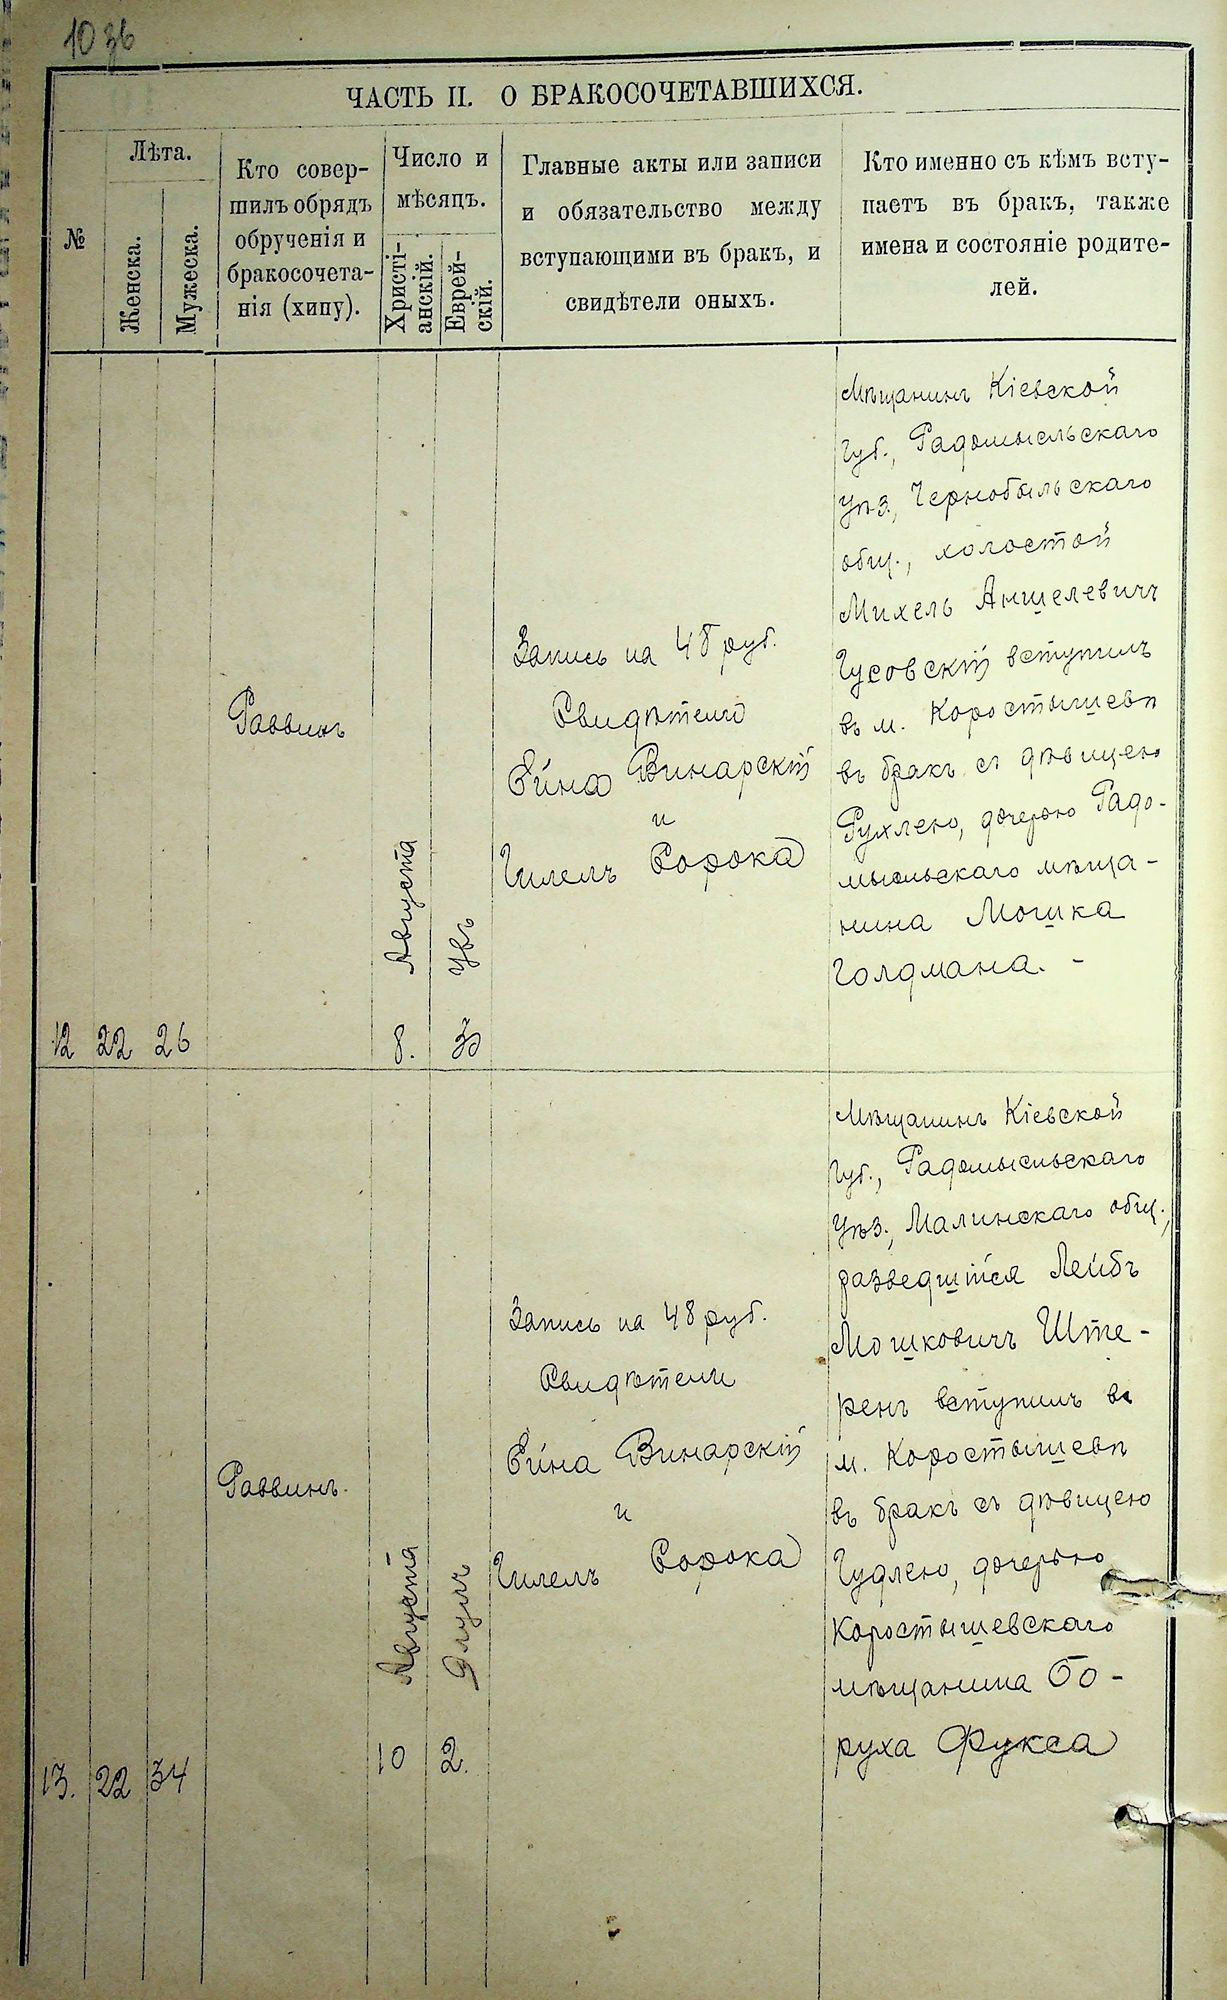 1036
ЧАСТЬ II. О БРАКОСОЧЕТАВШИХСЯ.
№
Лѣта.
Женска.
Мужеска.
Кто совер-
шилъ обрядъ
обрученія и
бракосочета-
нія (хипу).
Число и
мѣсяцъ.
Христі-
анскій.
Еврей-
скій.
Главные акты или записи
и обязательство между
вступающими въ бракъ, и
свидѣтели оныхъ.
Кто именно съ кѣмъ всту-
паетъ въ бракъ, также
имена и состояніе родите-
лей.
12
22
26
Раввинъ
Августа
8.
Увъ
30
Запись на 48 руб.
Свидѣтели
Ейна Винарскій
и
Гилелъ Сорока
Мѣщанинъ Кіевской
Губ., Радомысльскаго
Уѣз., Чернобыльскаго
общ., холостой
Михель Аншелевичъ
Гусовскій вступилъ
въ м. Коростышевѣ
въ бракъ съ дѣвицею
Рухлею, дочерью Радо-
мысльскаго мѣща-
нина Мошка
Голдмана. -
13.
22
34
Раввинъ.
Августа
10
Элулъ
2.
Запись на 48 руб.
Свидѣтели
Ейна Винарскій
и
Гилелъ Сорока
Мѣщанинъ Кіевской
Губ., Радомысльскаго
Уѣз., Малинскаго общ.,
разведшійся Лейбъ
МошковичъШте-
ренъ вступилъ въ
м. Коростышевѣ
въ бракъ съ дѣвицею
Гудлею, дочерью
Коростышевскаго
мѣщанина Бо-
руха Фукса